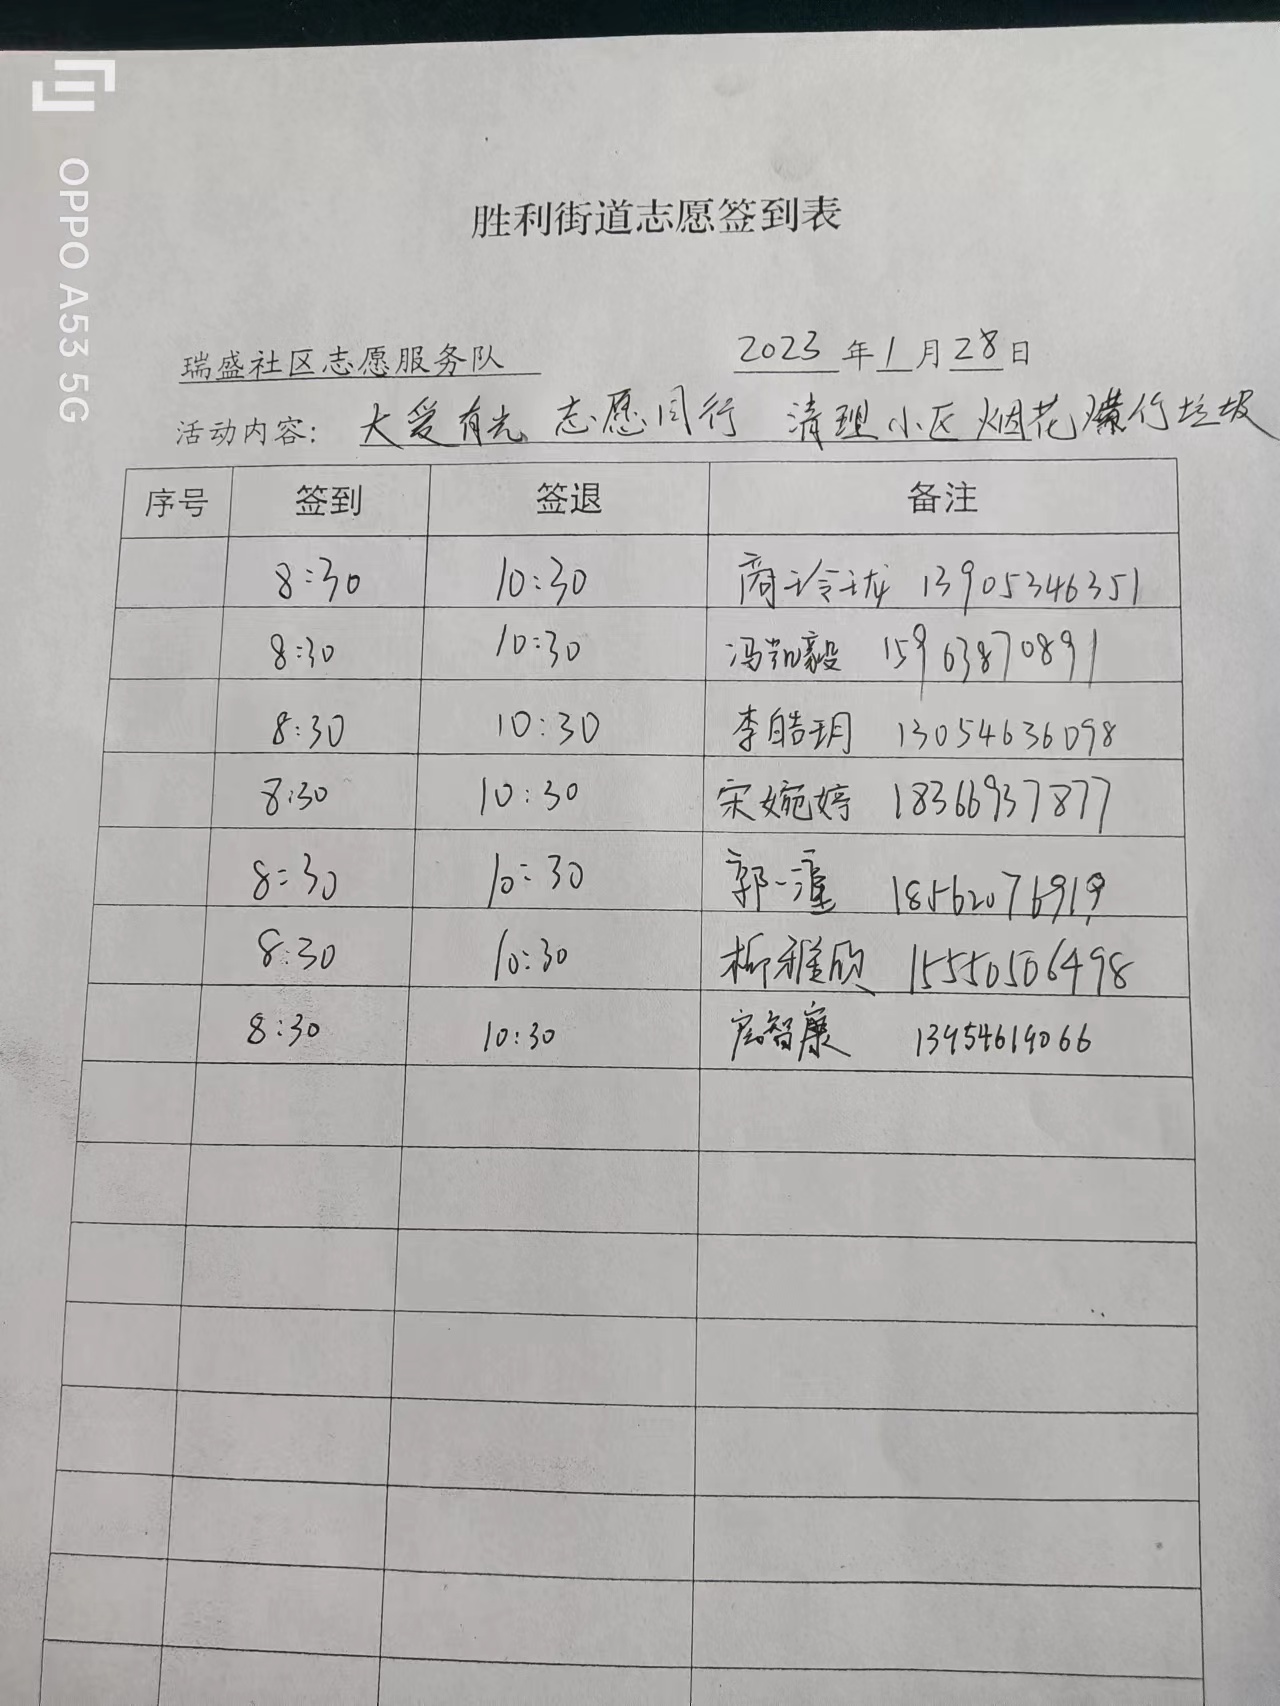 OPPO A53 5G
胜利街道志愿签到表
瑞盛社区志愿服务队 2023年1月28日
活动内容: 大爱有光 志愿同行 清理小区烟花爆竹垃圾
序号 签到 签退 备注
8:30 10:30 商玲珑 13905346351
8:30 10:30 冯凯毅 15963870891
8:30 10:30 李皓玥 13054636098
8:30 10:30 宋婉婷 18366937877
8:30 10:30 郭一潼 18562076919
8:30 10:30 柳雅欣 15550506498
8:30 10:30 智康 13954619066